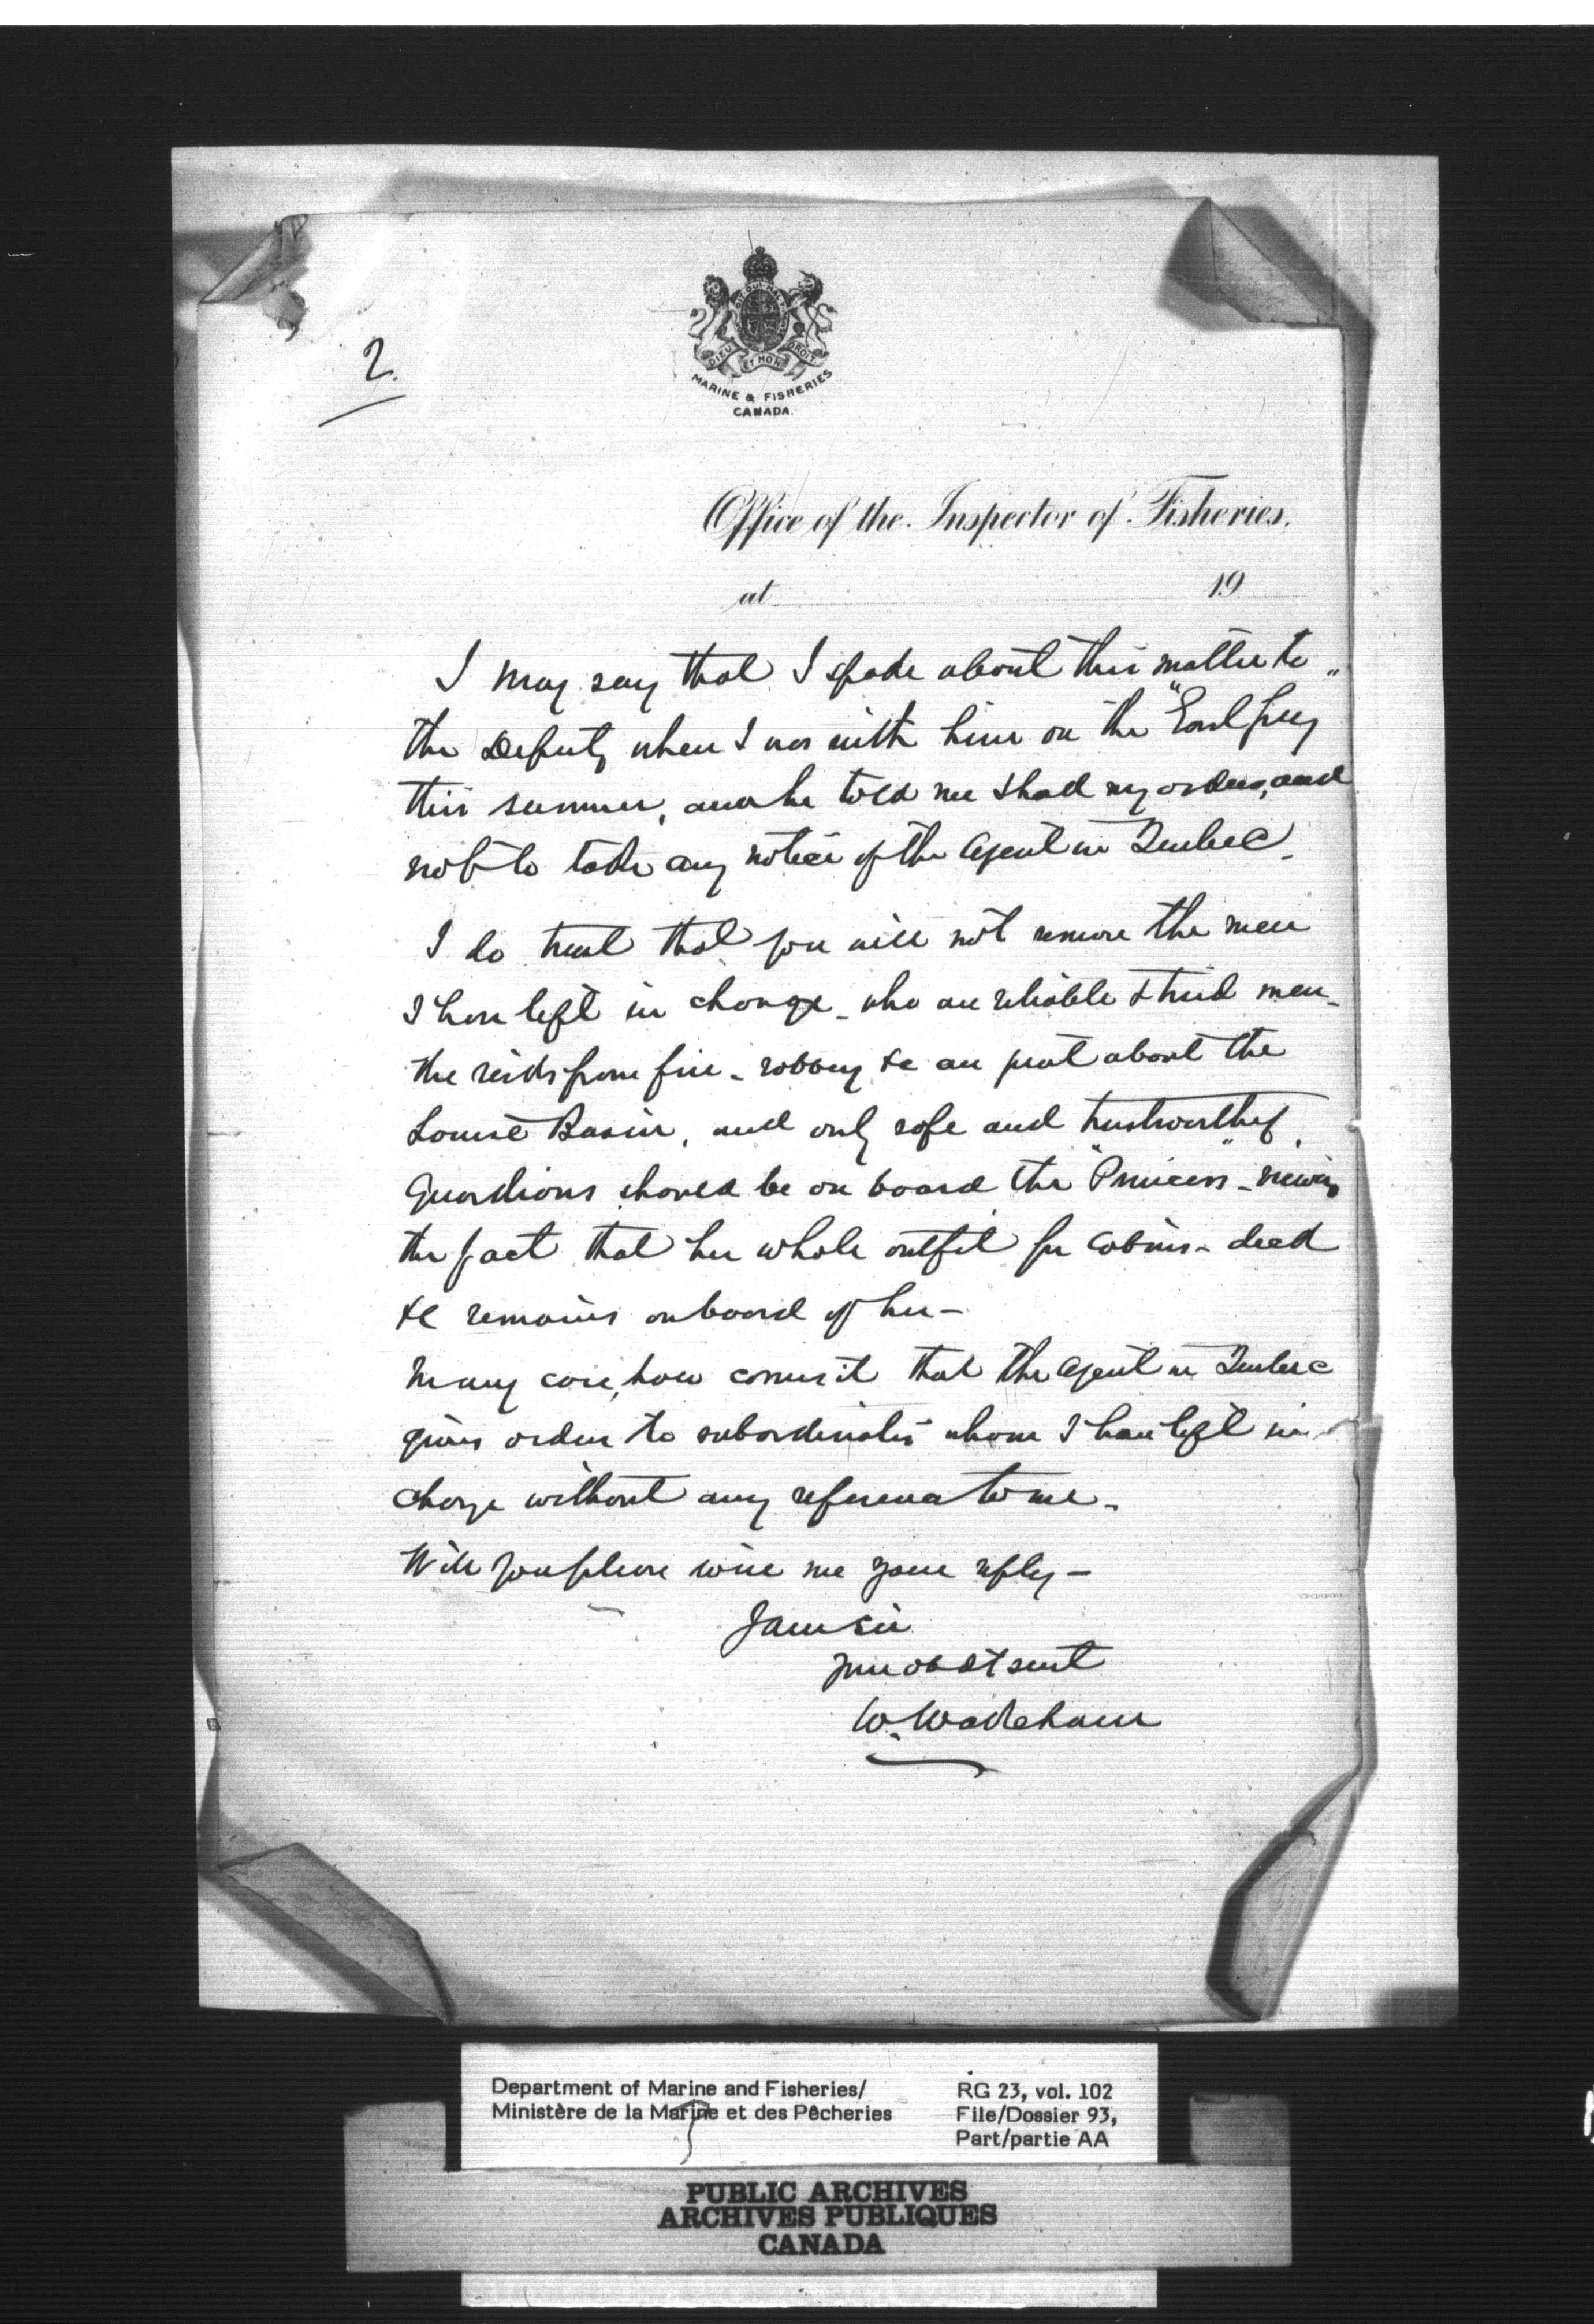 2.
DIEU ET MON DROIT
MARINE & FISHERIES
CANADA.
Office of the Inspector of Fisheries.
at 19
I may say that I spoke about this matter to
the Deputy when I was with him on the "Earl Grey"
this summer, and he told me I had my orders, and
not to take any notice of the Agent in Quebec.
I do trust that you will not remove the men
I have left in charge - who are reliable & tried men -
the risks from fire - robbery &c are great about the
Louise Basin, and only safe and trustworthy
Guardians should be on board the "Princess" - viewing
the fact that her whole outfit for cabins - deck
&c remains on board of her -
In any case, how comes it that the Agent in Quebec
gives orders to subordinates whom I have left in
charge without any reference to me -
Will you please wire me your reply -
I am Sir
Your obdt servt
W. Wakeham
Department of Marine and Fisheries/
Ministère de la Marine et des Pêcheries
RG 23, vol. 102
File/Dossier 93,
Part/partie AA
PUBLIC ARCHIVES
ARCHIVES PUBLIQUES
CANADA